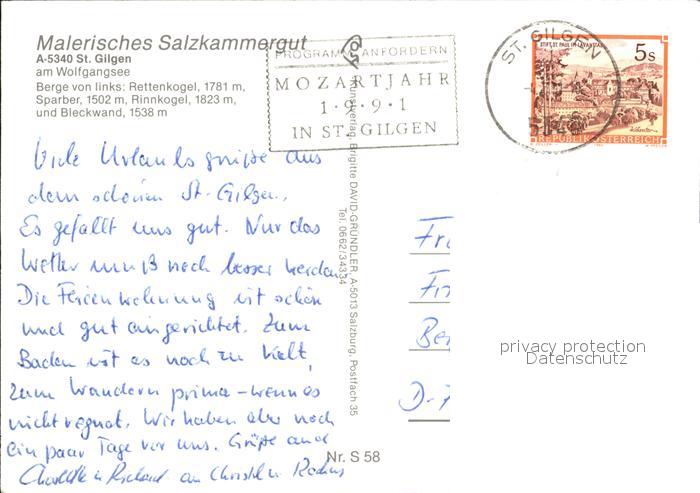 Malerisches Salzkammergut
A-5340 St. Gilgen
am Wolfgangsee
Berge von links: Rettenkogel, 1781 m,
Sparber, 1502 m, Rinnkogel, 1823 m,
und Bleckwand, 1538 m
PROGRAMM ANFORDERN
MOZARTJAHR
1·9·9·1
IN ST. GILGEN
ST. GILGEN
STIFT ST. PAUL IM LAVANTTAL
5s
REPUBLIK ÖSTERREICH
Viele Urlaubsgrüße aus
dem schönen St. Gilgen.
Es gefällt uns gut. Nur das
Wetter muß noch besser werden.
Die Ferienwohnung ist schön
und gut eingerichtet. Zum
Baden ist es noch zu kalt,
zum Wandern prima - wenn es
nicht regnet. Wir haben aber noch
ein paar Tage vor uns. Grüße auch
Charlotte u. Richard an Christel u.
Kunstverlag, Brigitte DAVID-GRÜNDLER, A-5013 Salzburg, Postfach 35
Tel. 0662/34334
Nr. S 58
D-7
privacy protection
Datenschutz